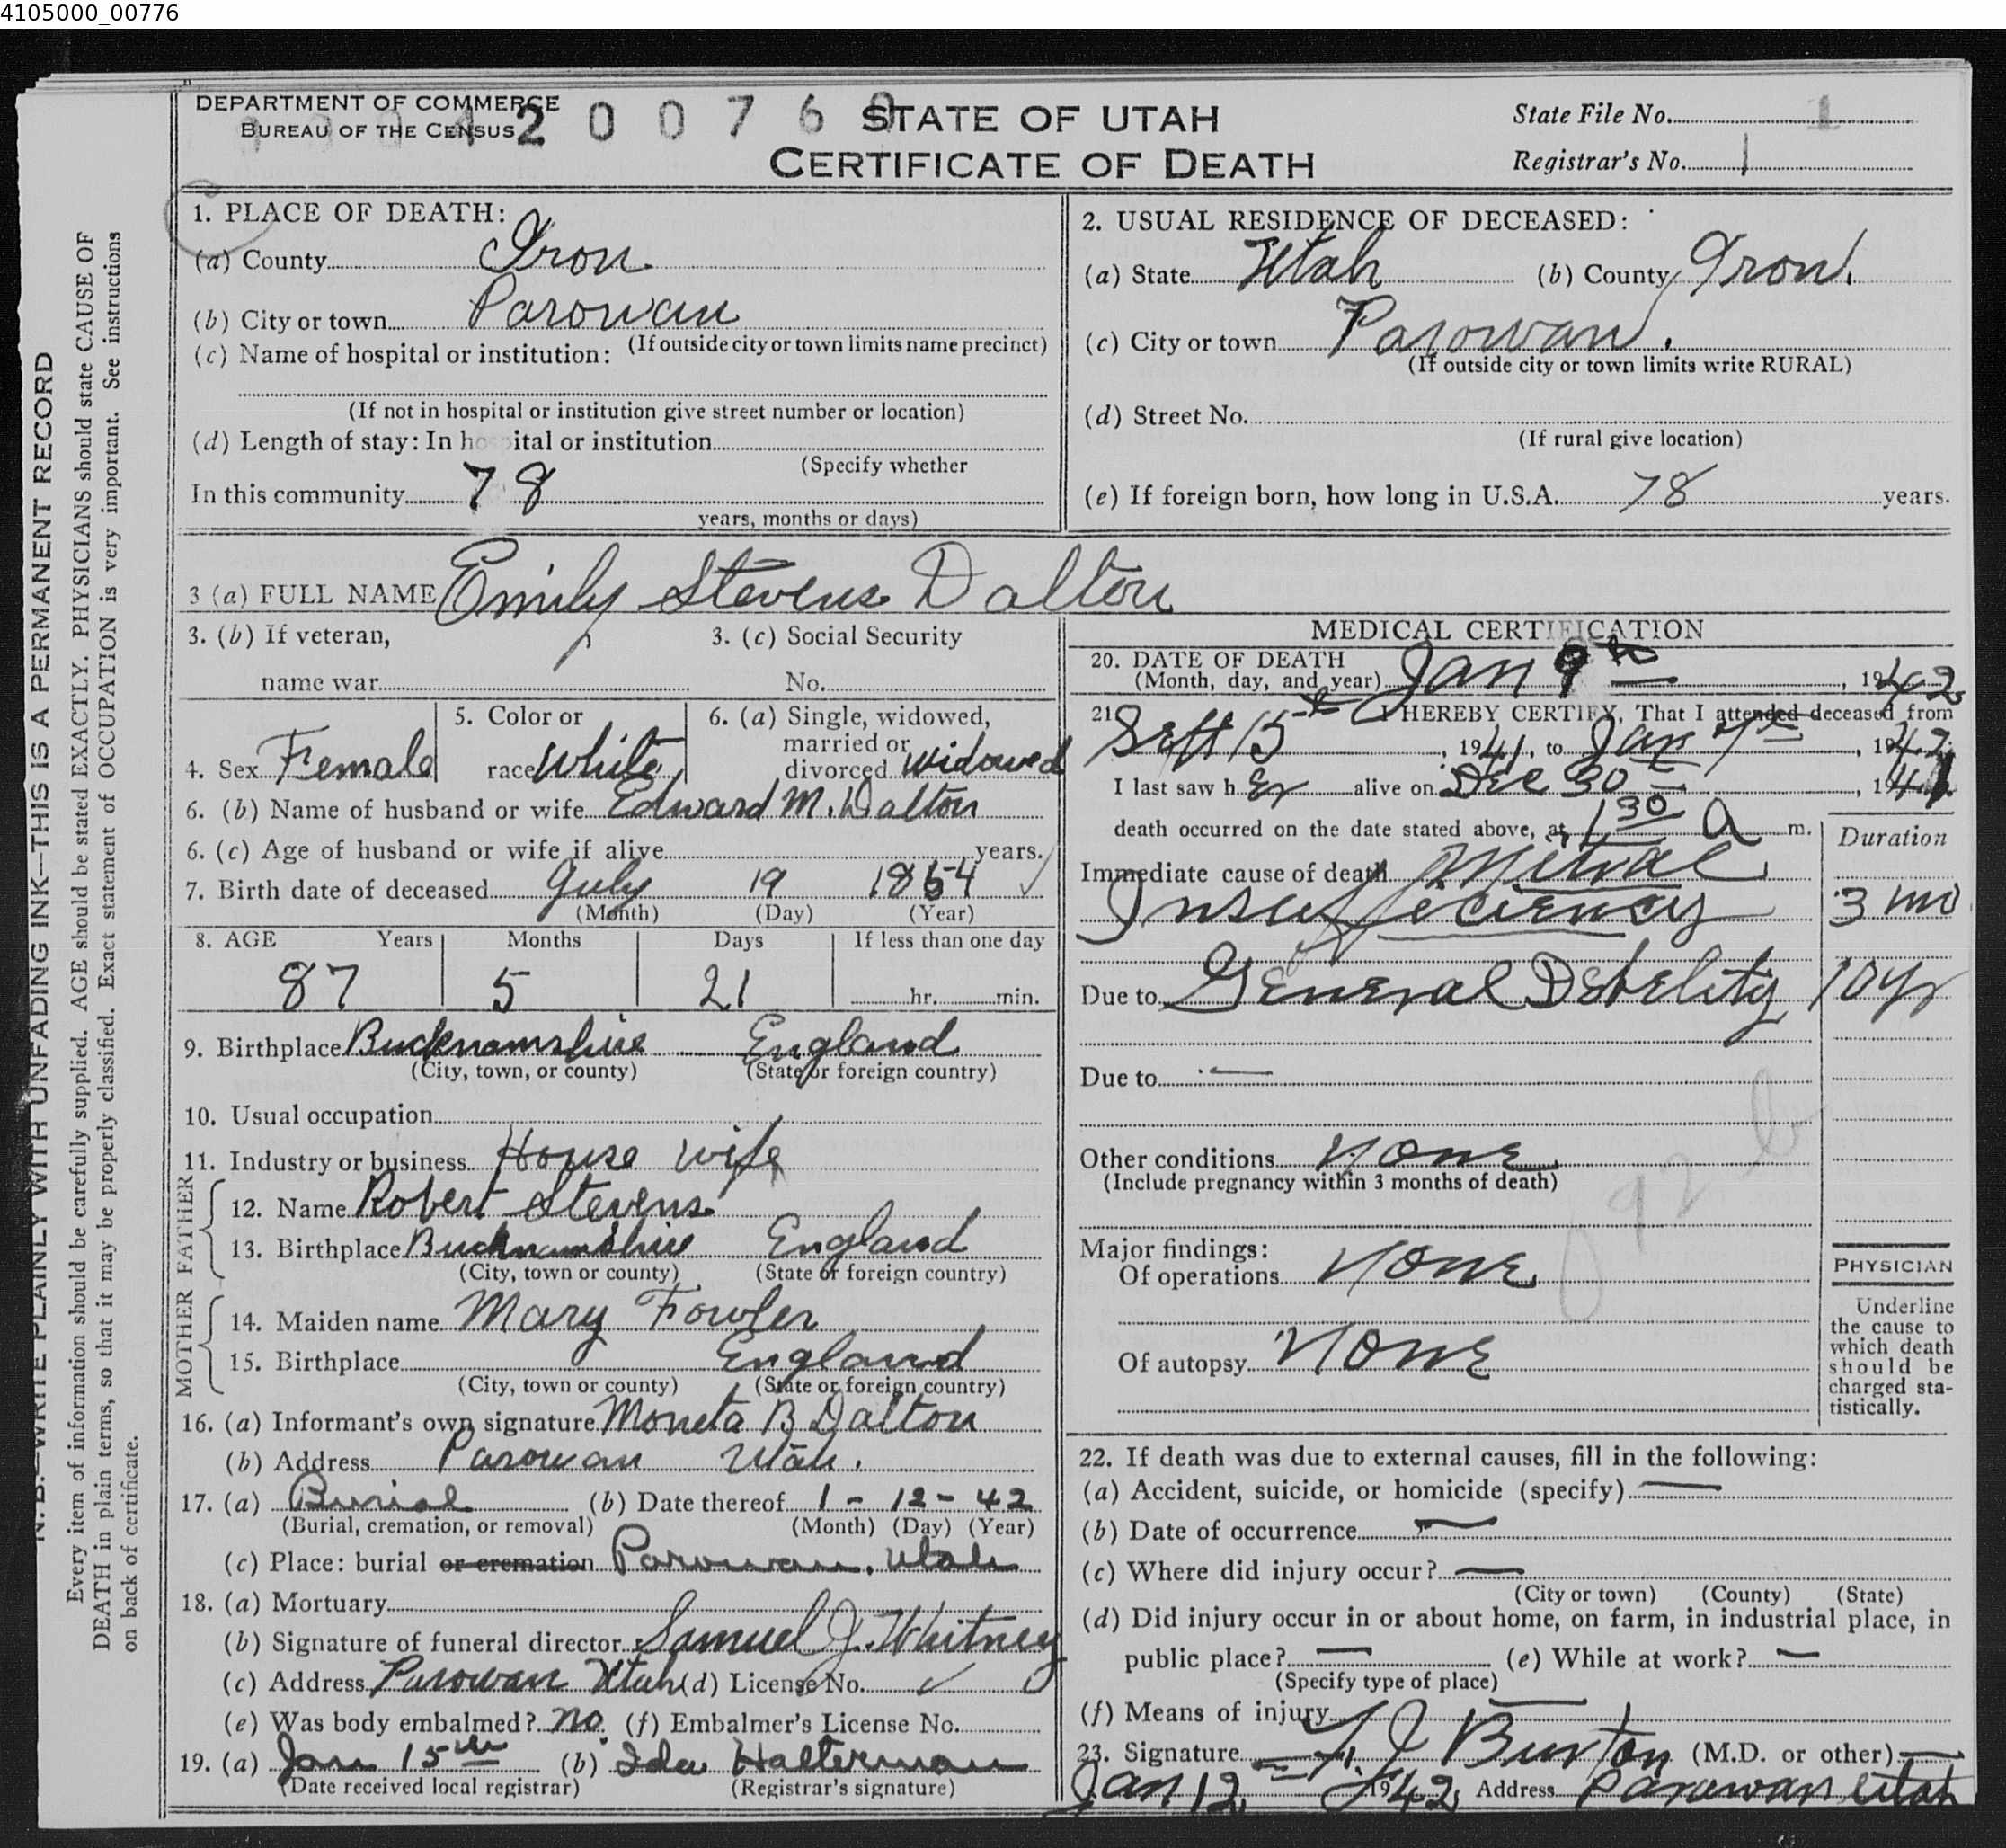 4105000_00776
DEPARTMENT OF COMMERCE
BUREAU OF THE CENSUS
2 0 0 7 6 0
STATE OF UTAH
CERTIFICATE OF DEATH
State File No. 1
Registrar's No. 1
N. B.—WRITE PLAINLY WITH UNFADING INK—THIS IS A PERMANENT RECORD
Every item of information should be carefully supplied. AGE should be stated EXACTLY. PHYSICIANS should state CAUSE OF
DEATH in plain terms, so that it may be properly classified. Exact statement of OCCUPATION is very important. See instructions
on back of certificate.
1. PLACE OF DEATH:
(a) County Iron
(b) City or town Parowan
(If outside city or town limits name precinct)
(c) Name of hospital or institution:
(If not in hospital or institution give street number or location)
(d) Length of stay: In hospital or institution
(Specify whether
In this community 78
years, months or days)
2. USUAL RESIDENCE OF DECEASED:
(a) State Utah (b) County Iron
(c) City or town Parowan.
(If outside city or town limits write RURAL)
(d) Street No.
(If rural give location)
(e) If foreign born, how long in U.S.A. 78 years.
3 (a) FULL NAME Emily Stevens Dalton
3. (b) If veteran,
name war
3. (c) Social Security
No.
4. Sex Female
5. Color or
race White
6. (a) Single, widowed,
married or
divorced widowed
6. (b) Name of husband or wife Edward M. Dalton
6. (c) Age of husband or wife if alive years.
7. Birth date of deceased July 19 1854
(Month) (Day) (Year)
8. AGE Years Months Days If less than one day
87 5 21 hr. min.
9. Birthplace Bucknamshire England
(City, town, or county) (State or foreign country)
10. Usual occupation
11. Industry or business House wife
FATHER
12. Name Robert Stevens
13. Birthplace Bucknamshire England
(City, town or county) (State or foreign country)
MOTHER
14. Maiden name Mary Fowler
15. Birthplace England
(City, town or county) (State or foreign country)
16. (a) Informant's own signature Moneta B Dalton
(b) Address Parowan Utah.
17. (a) Burial (b) Date thereof 1 - 12 - 42
(Burial, cremation, or removal) (Month) (Day) (Year)
(c) Place: burial or cremation Parowan, Utah
18. (a) Mortuary
(b) Signature of funeral director Samuel J. Whitney
(c) Address Parowan Utah (d) License No.
(e) Was body embalmed? no. (f) Embalmer's License No.
19. (a) Jan 15th (b) Ida Halterman
(Date received local registrar) (Registrar's signature)
MEDICAL CERTIFICATION
20. DATE OF DEATH
(Month, day, and year) Jan 9th, 1942
21. I HEREBY CERTIFY, That I attended deceased from
Sept 15th, 1941, to Jan 7th, 1942
I last saw h er alive on Dec 30, 1941
death occurred on the date stated above, at 1 30 a m.
Duration
Immediate cause of death Mitral
Insufficiency 3 mo
Due to General Debelity 10 yr
Due to —
Other conditions None
(Include pregnancy within 3 months of death)
092 b
Major findings:
Of operations None
Of autopsy None
PHYSICIAN
Underline
the cause to
which death
should be
charged sta-
tistically.
22. If death was due to external causes, fill in the following:
(a) Accident, suicide, or homicide (specify) —
(b) Date of occurrence —
(c) Where did injury occur? —
(City or town) (County) (State)
(d) Did injury occur in or about home, on farm, in industrial place, in
public place? — (e) While at work? —
(Specify type of place)
(f) Means of injury —
23. Signature Burton (M.D. or other) —
Jan 12, 1942, Address Parawan Utah